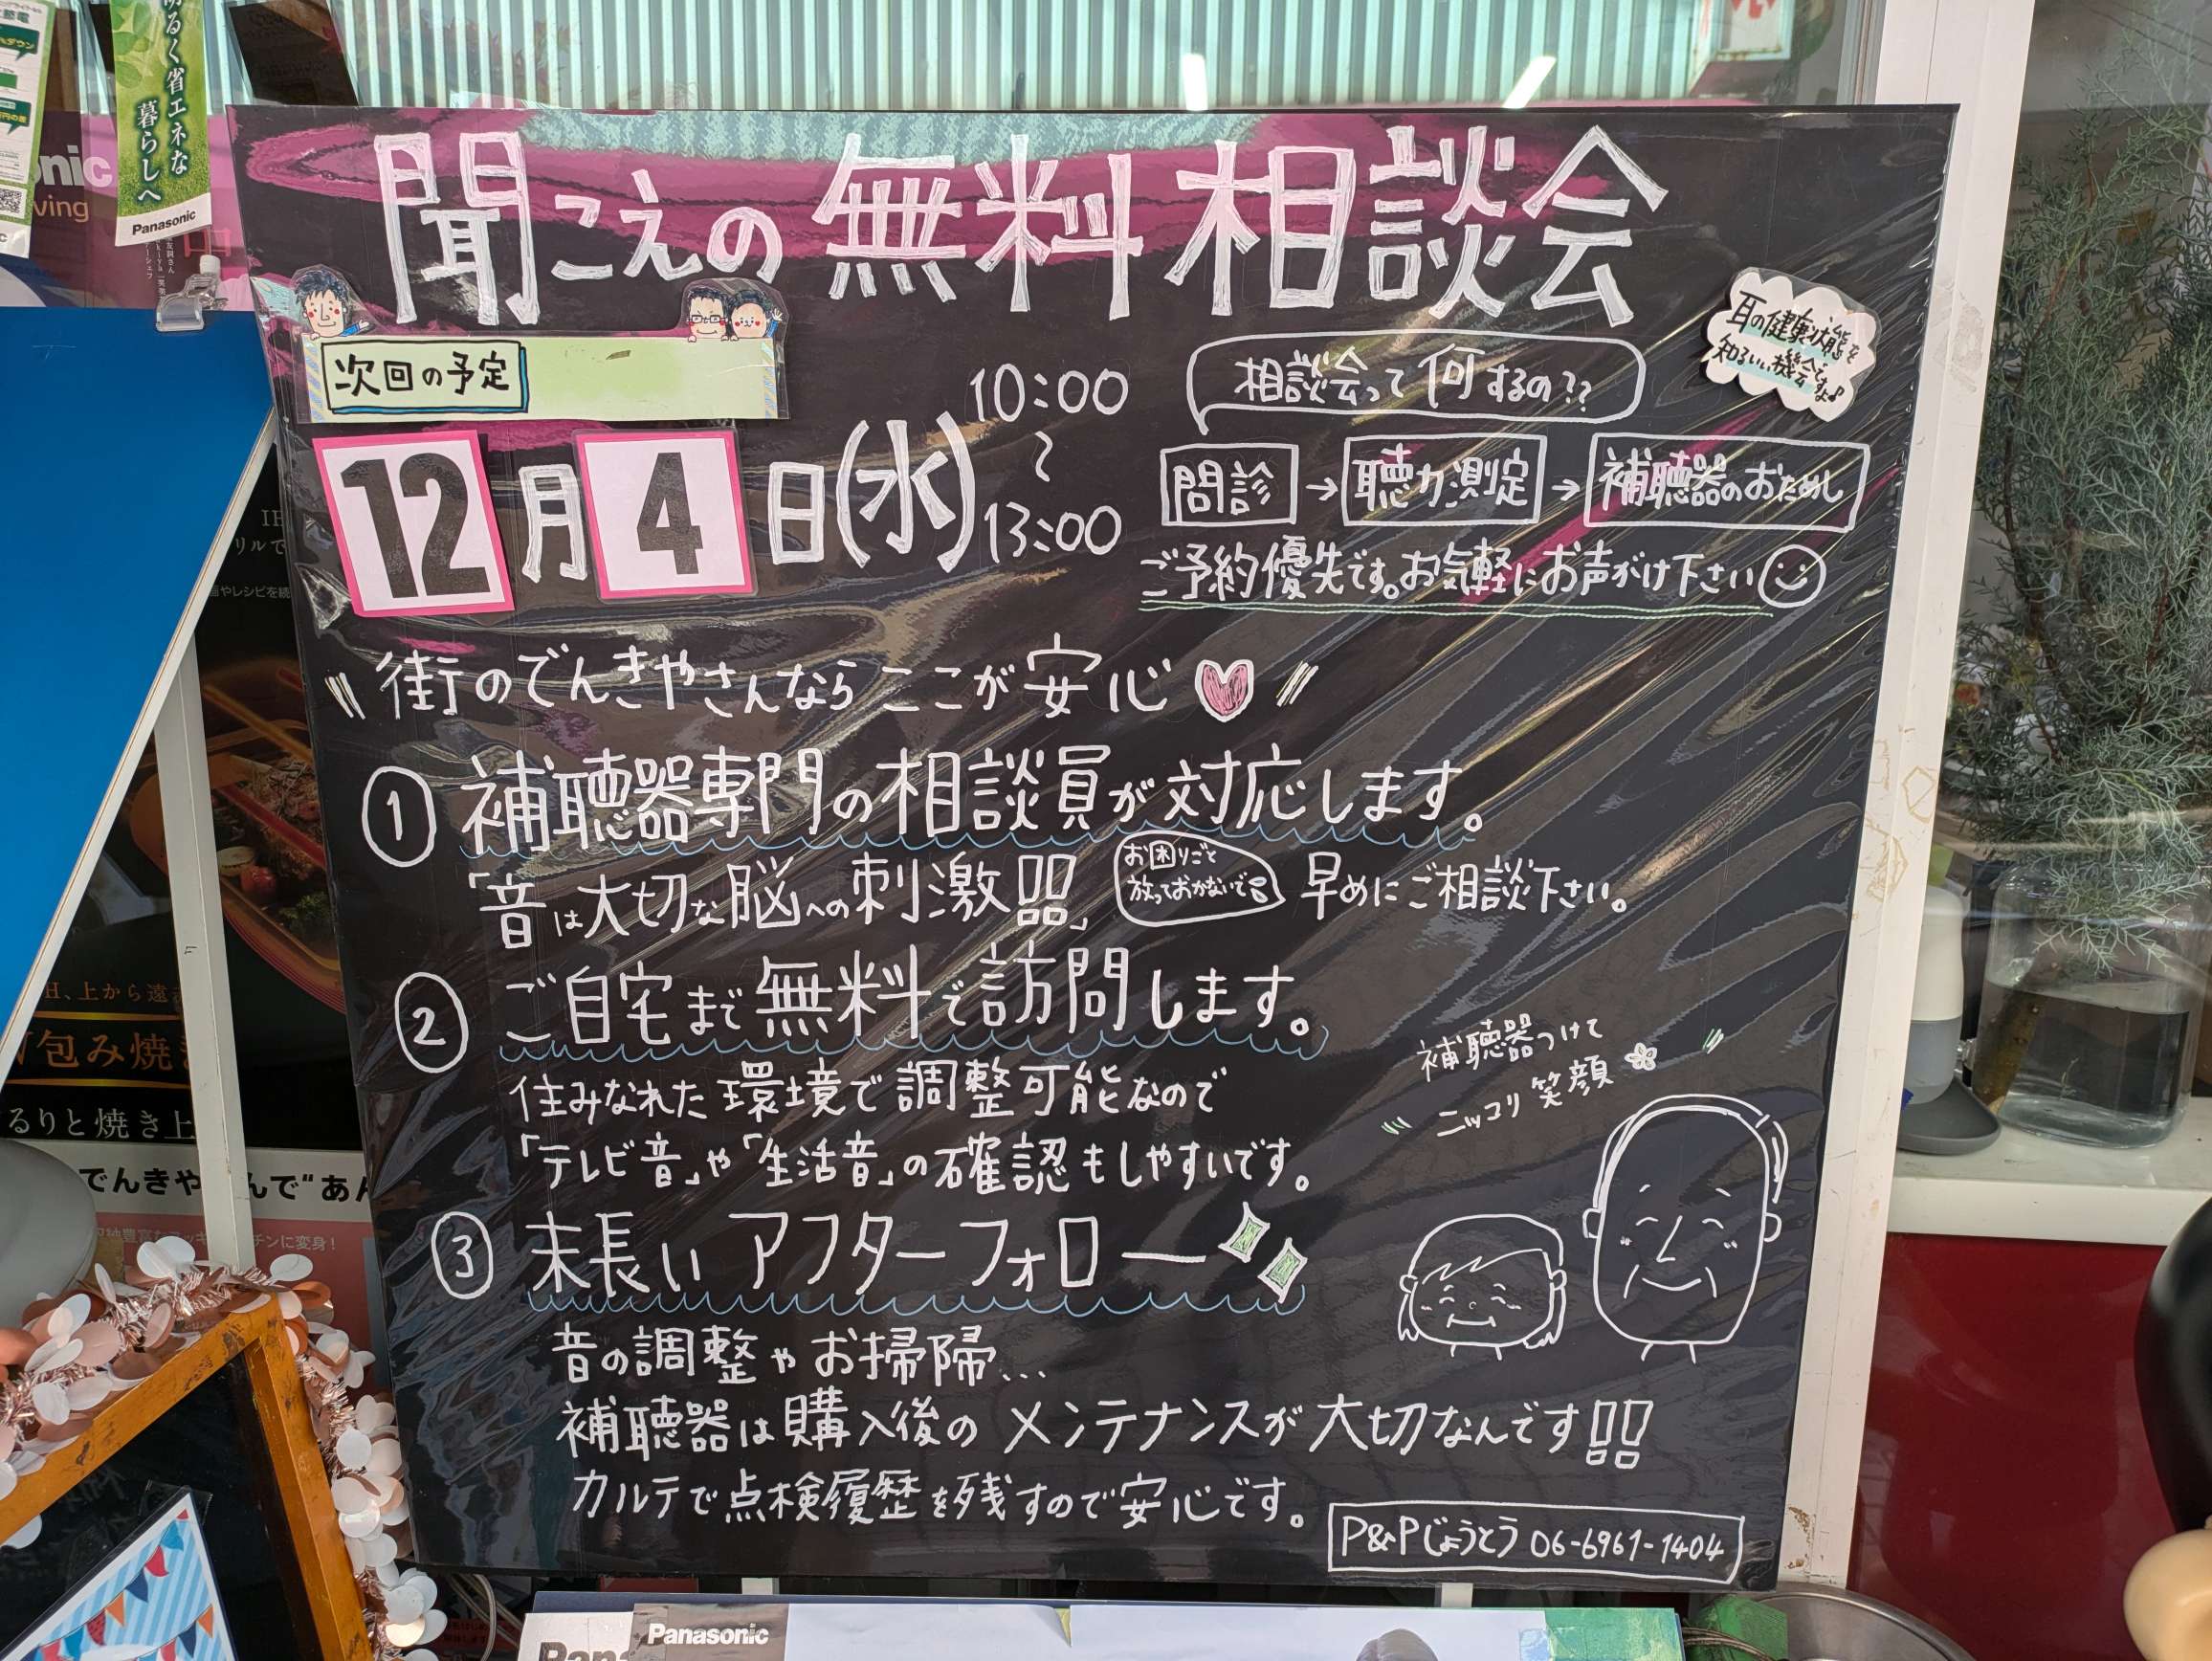 明るく省エネな
暮らしへ
Panasonic
聞こえの無料相談会
次回の予定
12月4日(水)
10:00
〜
13:00
耳の健康状態を
知るいい機会ですよ♪
相談会って何するの??
問診→聴力測定→補聴器のおためし
ご予約優先です。お気軽にお声がけ下さい
街のでんきやさんならここが安心
① 補聴器専門の相談員が対応します。
「音は大切な脳への刺激!!」
お困りごと
放っておかないで
早めにご相談下さい。
② ご自宅まで無料で訪問します。
住みなれた環境で調整可能なので
「テレビ音」や「生活音」の確認もしやすいです。
補聴器つけて
ニッコリ笑顔
③ 末長いアフターフォロー
音の調整やお掃帰...
補聴器は購入後のメンテナンスが大切なんです!!
カルテで点検履歴を残すので安心です。
P&Pじょうとう 06-6961-1404
包み焼き
るりと焼き上
でんきや
Panasonic